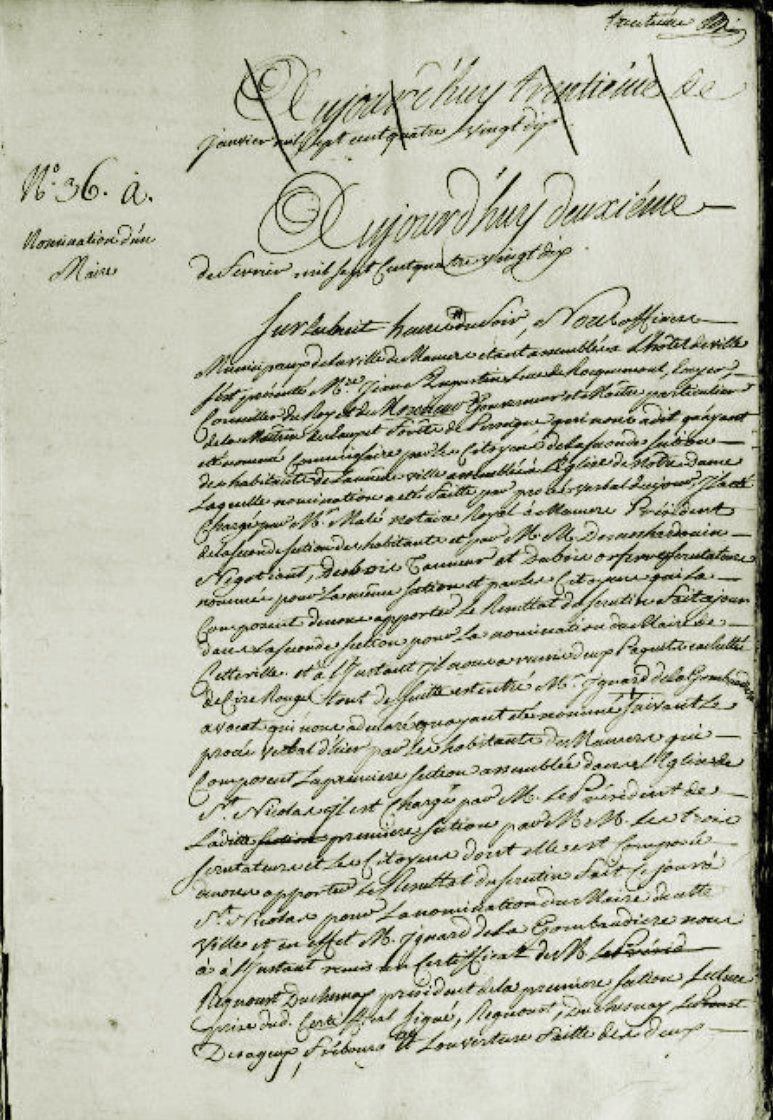 trentième
Aujourd'huy trentième de
janvier mil sept cent quatre vingt dix
N.o 36. a.
Nomination d'un
Maire
Aujourd'huy deuxiéme
de Fevrier mil sept Cent quatre vingt dix
Sur les huit heures du Soir, Nous officiers
Municipaux de la ville de Mamers étant assemblés à L'hotel de ville
s'est présenté M.re Jean Augustin de Rocquemont, Ecuyer
Conseiller du Roy et de Monsieur Gouverneur et Maitre particulier
de la Maitrise des Eaux et Forêts de Perseigne qui nous a dit qu'ayant
eté nommé Commissaire par les Citoyens de la seconde section
des habitants de la même ville assemblés à L'Eglise de Notre Dame
Laquelle nomination a eté faitte par procès verbal du jour, Il a eté
Chargé par M.r Malé notaire Royal à Mamers Président
de la seconde section des habitants et par M. M. Desmarchedouin
Négotiant, Desbois Tanneur et Dubois orfevre scrutateurs
nommés pour la même section et par les Citoyens qui la
Composent de nous apporter Le Resultat du scrutin Fait a jour
dans La seconde section pour La nomination du Maire de
Cette ville et à l'Instant il nous a remis deux Paquets cachetés
de Cire Rouge tout de suitte est entré M.r Ignard de la Gombaudiere
avocat qui nous a declaré qu'ayant eté nommé Suivant Le
procès verbal d'hier par Les habitants de Mamers qui
Composent La premiere section assemblée dans L'Eglise de
S.t Nicolas il est Chargé par M. Le Président de
Laditte section premiere section par M. M. Les trois
scrutateurs et Les Citoyens dont elle est Composée
de nous apporter Le Resultat du scrutin Fait ce jour à
S.t Nicolas pour La nomination du Maire de cette
Ville et en effet M. Ignard de La Gombaudiere nous
à à l'Instant remis un Certifficat de M. Le Présid
Requourt Duchesnay président de la premiere section Lecture
prise dud. Certifficat signé, Requourt, Duchesnay,
Derageux, Fribourg et L'ouverture faitte des deux